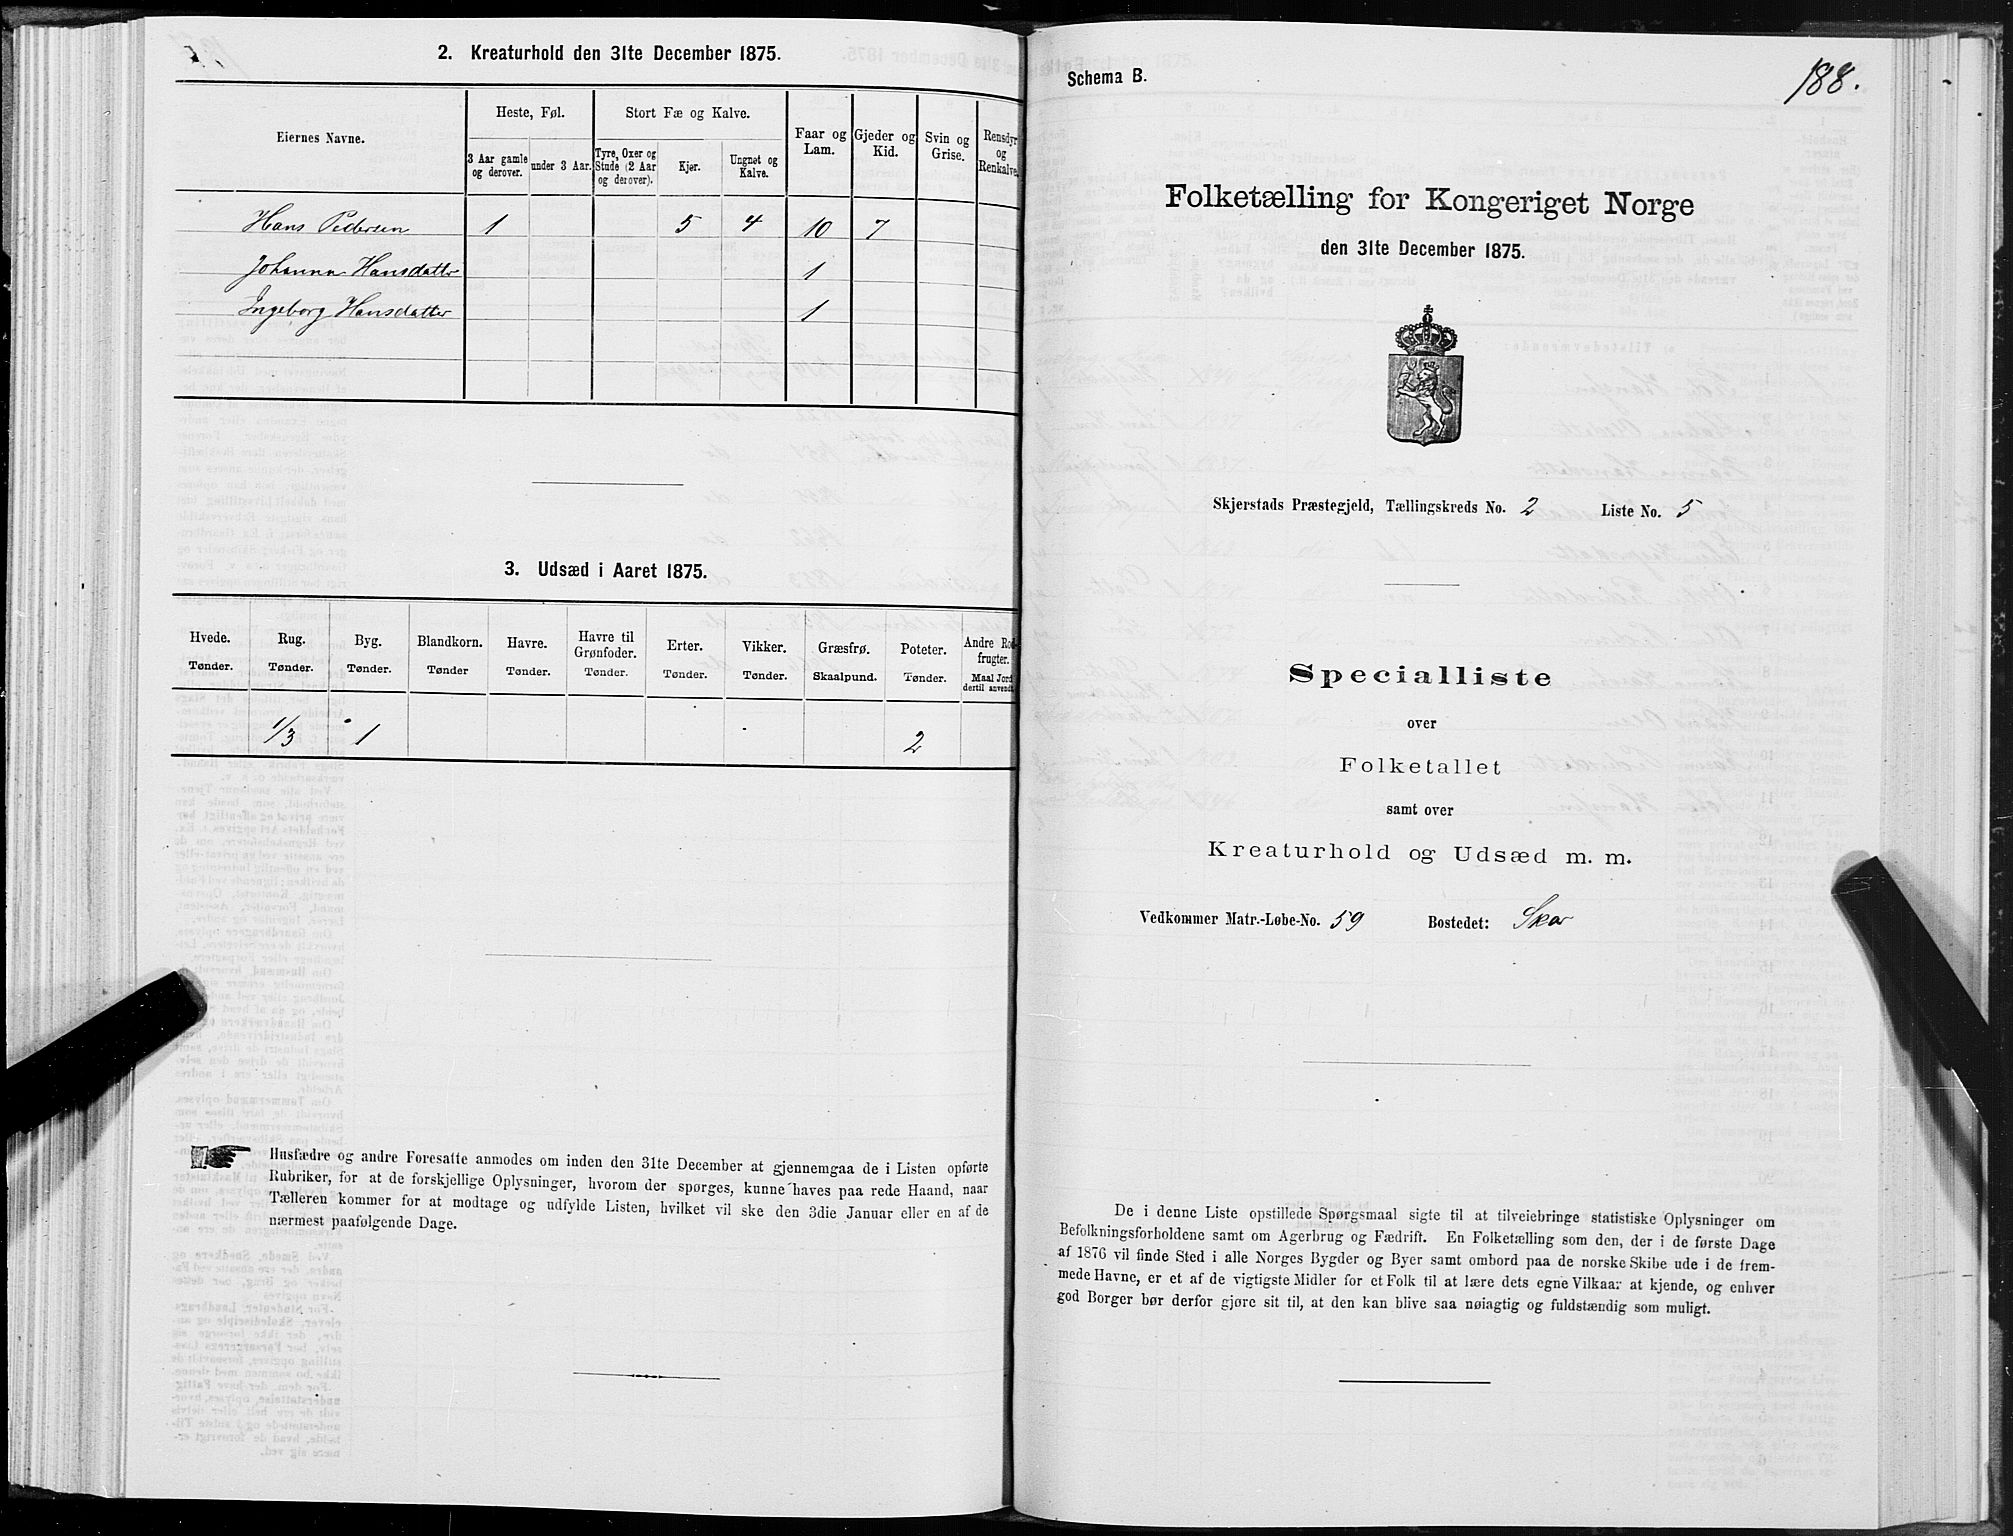 2. Kreaturhold den 31te December 1875.
Eiernes Navne.
Heste, Føl.
Stort Fæ og Kalve.
Faar og Lam.
Gjeder og Kid.
Svin og Grise.
Rensdyr og Renkalve.
3 Aar gamle og derover.
under 3 Aar.
Tyre, Oxer og Stude (2 Aar og derover).
Kjør.
Ungnøt og Kalve.
Hans Pedersen 1 5 4 10 7
Johanna Hansdatter 1
Ingeborg Hansdatter 1
3. Udsæd i Aaret 1875.
Hvede. Rug. Byg. Blandkorn. Havre. Havre til Grønfoder. Erter. Vikker. Græsfrø. Poteter. Andre Rodfrugter.
Tønder. Tønder. Tønder. Tønder Tønder. Tønder. Tønder. Tønder. Skaalpund. Tønder. Maal Jord dertil anvendt.
1/3 1 2
Husfædre og andre Foresatte anmodes om inden den 31te December at gjennemgaa de i Listen opførte
Rubriker, for at de forskjellige Oplysninger, hvorom der spørges, kunne haves paa rede Haand, naar
Tælleren kommer for at modtage og udfylde Listen, hvilket vil ske den 3die Januar eller en af de
nærmest paafølgende Dage.
Schema B.
188.
Folketælling for Kongeriget Norge
den 31te December 1875.
Skjerstads Præstegjeld, Tællingskreds No. 2 Liste No. 5
Specialliste
over
Folketallet
samt over
Kreaturhold og Udsæd m. m.
Vedkommer Matr.-Løbe-No. 59 Bostedet: Skar
De i denne Liste opstillede Spørgsmaal sigte til at tilveiebringe statistiske Oplysninger om
Befolkningsforholdene samt om Agerbrug og Fædrift. En Folketælling som den, der i de første Dage
af 1876 vil finde Sted i alle Norges Bygder og Byer samt ombord paa de norske Skibe ude i de frem-
mede Havne, er et af de vigtigste Midler for et Folk til at lære dets egne Vilkaar at kjende, og enhver
god Borger bør derfor gjøre sit til, at den kan blive saa nøiagtig og fuldstændig som muligt.